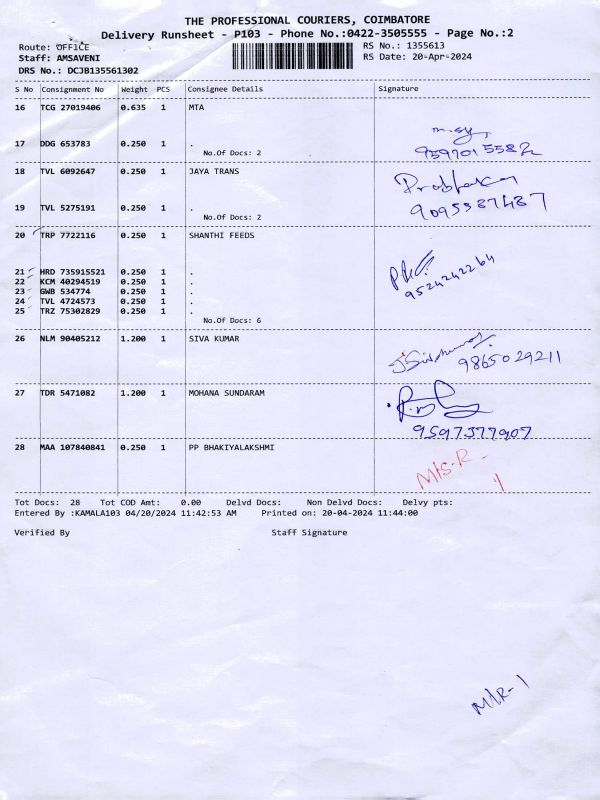 THE PROFESSIONAL COURIERS, COIMBATORE
Delivery Runsheet - P103 - Phone No.:0422-3505555 - Page No.:2
Route: OFFICE
RS No.: 1355613
Staff: AMSAVENI
RS Date: 20-Apr-2024
DRS No.: DCJB135561302
S No Consignment No Weight PCS Consignee Details Signature
16 TCG 27019406 0.635 1 MTA
17 DDG 653783 0.250 1 .
No.Of Docs: 2
18 TVL 6092647 0.250 1 JAYA TRANS
Prabhakar
9095337437
19 TVL 5275191 0.250 1 .
No.Of Docs: 2
20 TRP 7722116 0.250 1 SHANTHI FEEDS
21 HRD 735915521 0.250 1 .
9524242264
22 KCM 40294519 0.250 1 .
23 GWB 534774 0.250 1 .
24 TVL 4724573 0.250 1 .
25 TRZ 75302829 0.250 1 .
No.Of Docs: 6
26 NLM 90405212 1.200 1 SIVA KUMAR
9865029211
27 TDR 5471082 1.200 1 MOHANA SUNDARAM
9597377907
28 MAA 107840841 0.250 1 PP BHAKIYALAKSHMI
Tot Docs: 28 Tot COD Amt: 0.00 Delvd Docs: Non Delvd Docs: Delvy pts:
Entered By :KAMALA103 04/20/2024 11:42:53 AM Printed on: 20-04-2024 11:44:00
Verified By Staff Signature
M/R-1